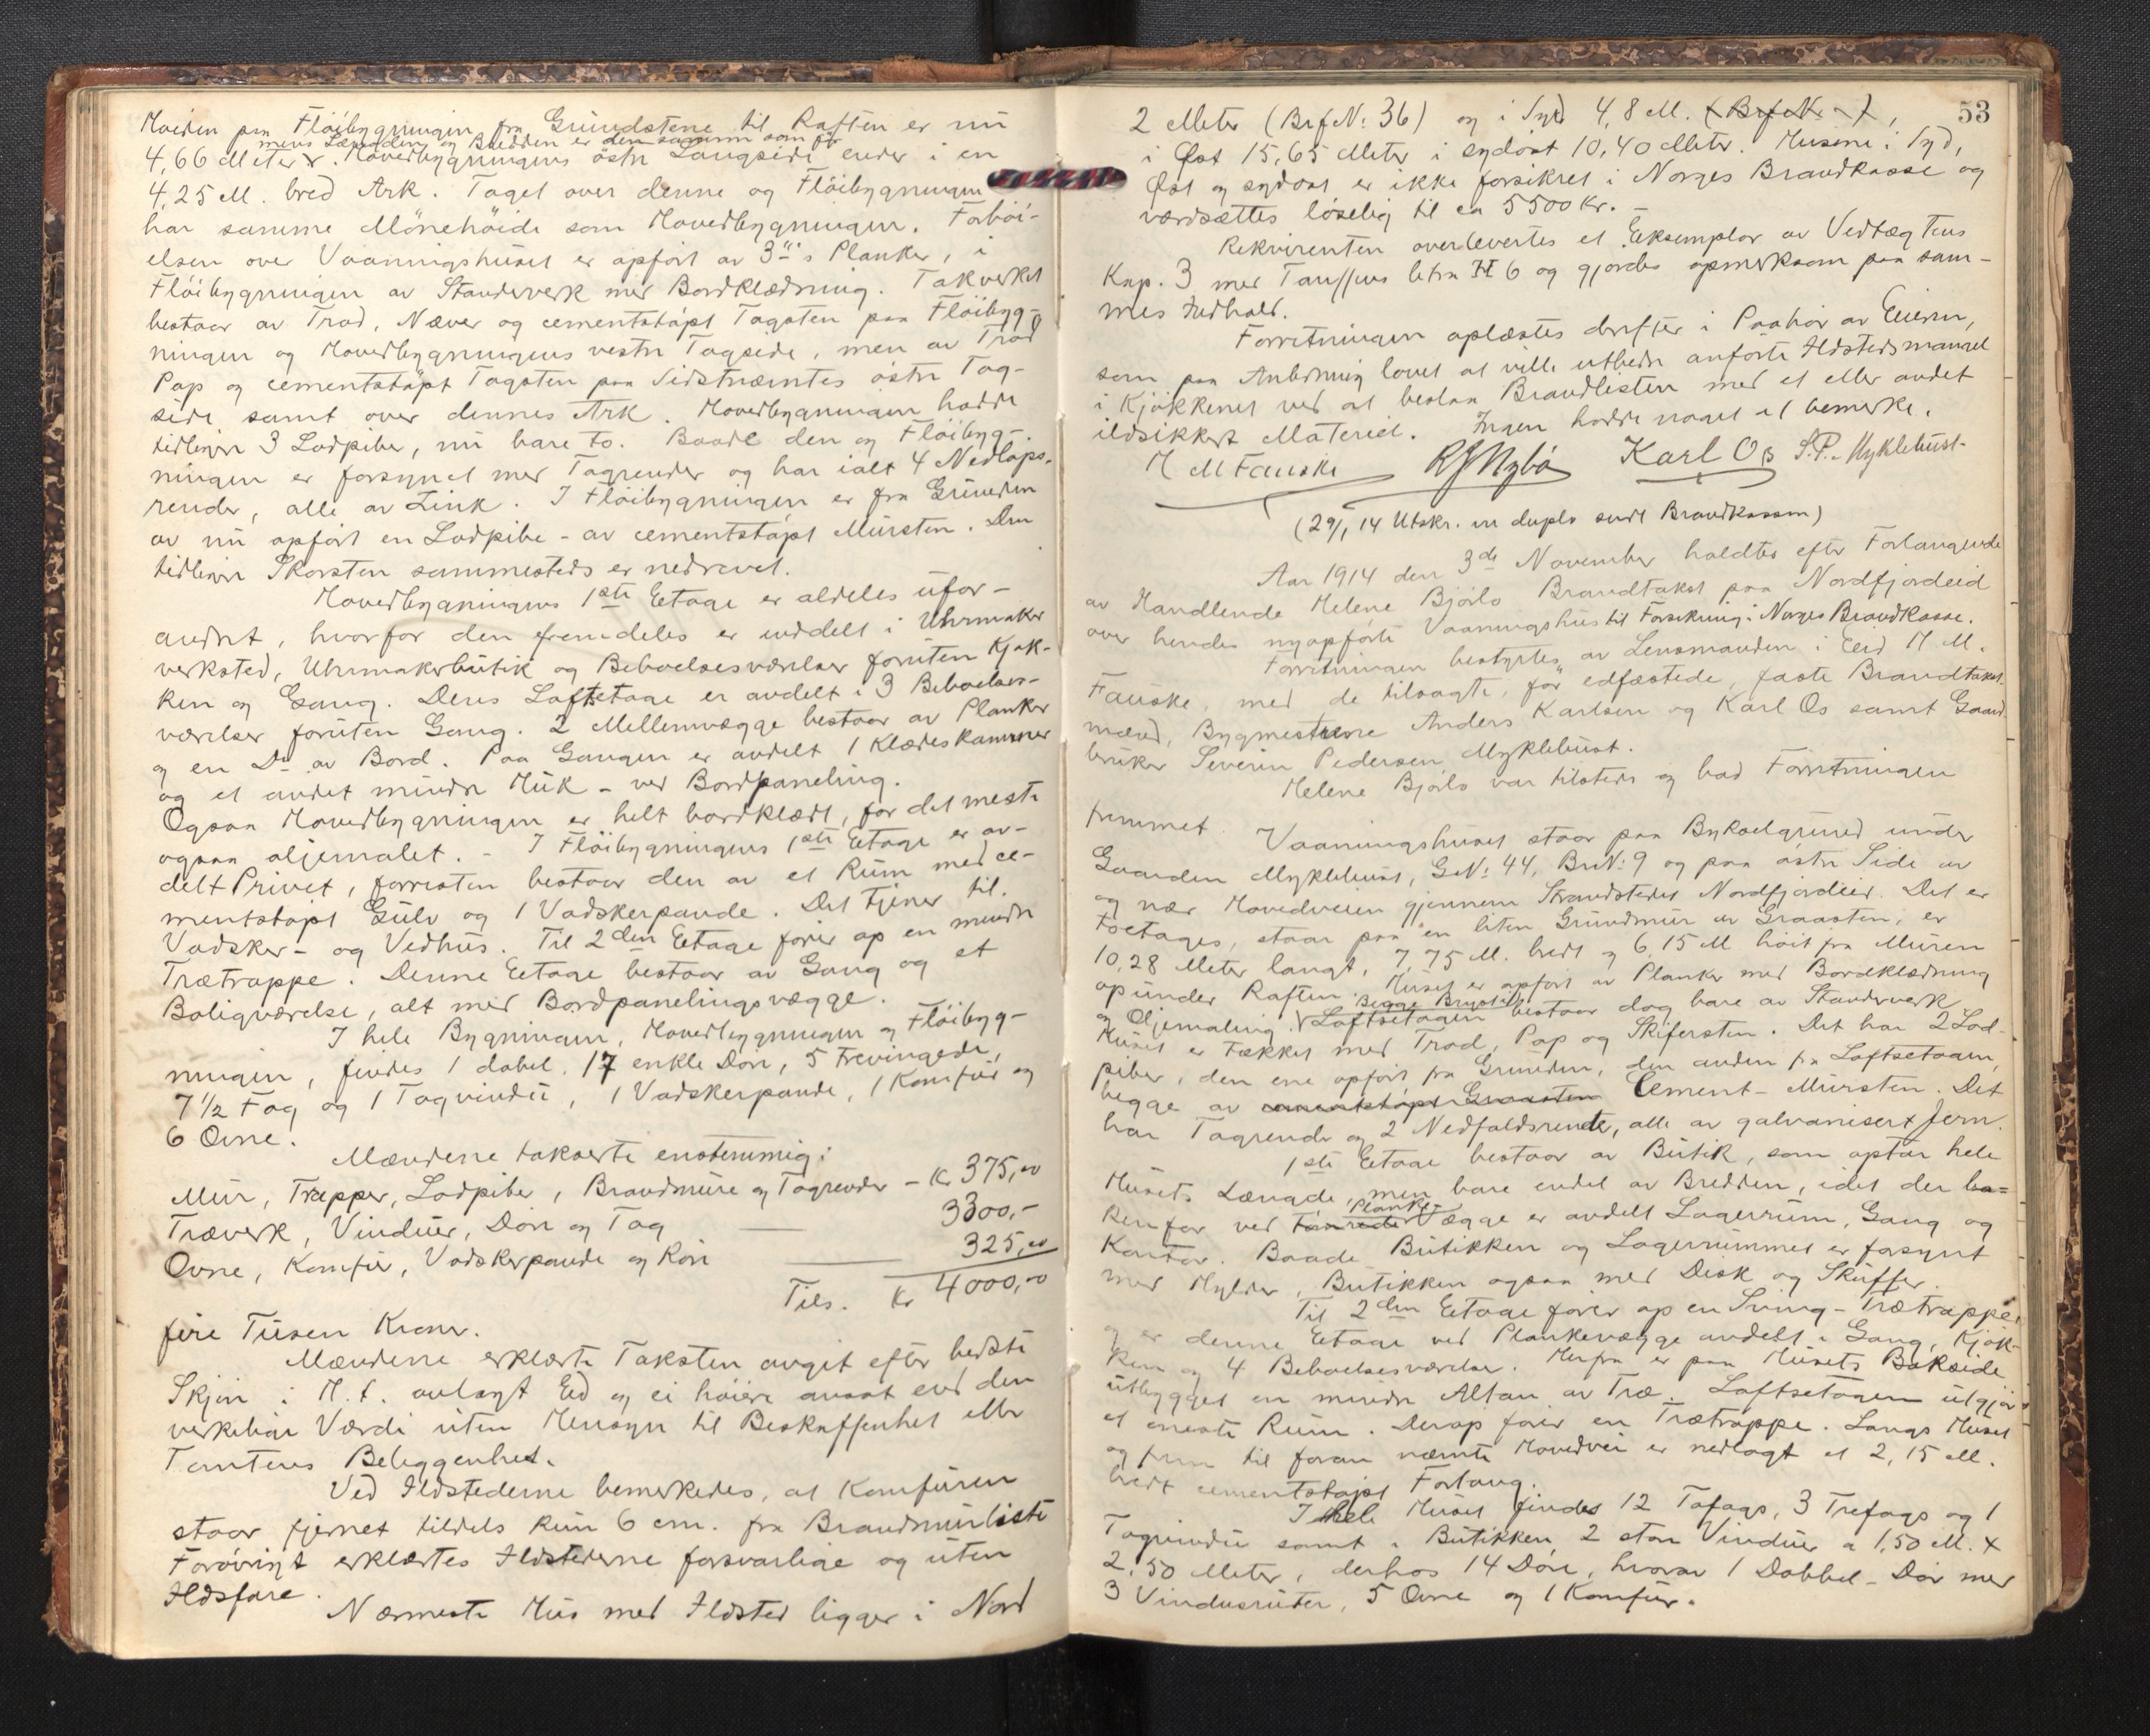 Høiden paa Fløibygningen fra Grundstene til Raften er nu
mens Længden og Bredden er den samme som før
4,66 Meter. Hovedbygningens østre Langside ender i en
4,25 M. bred Ark. Taget over denne og Fløibygningen
har samme Mønehøide som Hovedbygningen. Forhøi-
elsen over Vaaningshuset er opført av 3"s Planker, i
Fløibygningen av Standerverk med Bordklædning. Takverket
bestaar av Trod, Næver og cementstøpt Tagsten paa Fløibyg-
ningen og Hovedbygningens vestre Tagside, men av Trod
Pap og cementstøpt Tagsten paa Sidstnæmtes østre Tag-
side samt over dennes Ark. Hovedbygningen hadde
tidligere 3 Lodpiber, nu bare to. Baade den og Fløibyg-
ningen er forsynet med Tagrender og har ialt 4 Nedløps-
render, alle av Zink. I Fløibygningen er fra Grunden
av nu opført en Lodpibe - av cementstøpt Mursten. Den
tidligere Skorsten sammesteds er nedrevet.
Hovedbygningens 1ste Etage er aldeles ufor-
andret, hvorfor den fremdeles er inddelt i Uhrmaker
verksted, Uhrmakerbutik og Beboelsesværelser foruten Kjøk-
ken og Gang. Dens Loftsetage er avdelt i 3 Beboelses-
værelser foruten Gang. 2 Mellemvægge bestaar av Planker
og en Do av Bord. Paa Gangen er avdelt 1 Klædeskammer
og et andet mindre Huk - ved Bordpaneling.
Ogsaa Hovedbygningen er helt bordklædt, for det meste
ogsaa oljemalet. - I Fløibygningens 1ste Etage er av-
delt Privet, forresten bestaar den av et Rum med ce-
mentstøpt Gulv og 1 Vadskerpande. Det tjener til
Vadsker- og Vedhus. Til 2den Etage fører op en mindre
Trætrappe. Denne Etage bestaar av Gang og et
Boligværelse, alt med Bordpanelingsvægge.
I hele Bygningen, Hovedbygningen og Fløibyg-
ningen, findes 1 dobel. 17 enkle Døre, 5 trevingede,
7 1/2 Fag og 1 Tagvindu, 1 Vadskerpande, 1 Komfur og
6 Ovne.
Mændene takserte enstemmig:
Mur, Trapper, Lodpiber, Brandmure og Tagrender - Kr 375,00
Træverk, Vinduer, Døre og Tag 3300,-
Ovne, Komfur, Vadskerpande og Rør 325,00
Tils. Kr 4000,00
fire Tusen Kroner.
Mændene erklærte Taksten avgit efter bedste
Skjøn i H.t. avlagt Ed og ei høiere ansat end den
verkelige Værdi uten Hensyn til Beskaffenhet eller
Tomtens Beliggenhet.
Ved Ildstederne bemerkedes, at Komfuren
staar fjernet tildels kun 6 cm. fra Brandmurliste
Forøvrigt erklærtes Ildstederne forsvarlige og uten
Ildsfare.
Nærmeste Hus med Ildsted ligger i Nord
53
2 Meter (Brf No: 36) og i Syd 4,8 M. (Brf No - ),
i Øst 15,65 Meter i sydøst 10,40 Meter. Husene i Syd,
Øst og sydøst er ikke forsikret i Norges Brandkasse og
værdsættes løselig til ca 5500 Kr. -
Rekvirenten overlevertes et Eksemplar av Vedtægtens
Kap. 3 med Tariffens litra H 6 og gjordes opmerksom paa sam-
mes Indhold.
Forretningen oplæstes derefter i Paahør av Eieren,
som paa Anledning lovet at ville utbedre anførte Ildstedsmangel
i Kjøkkenet ved at beslaa Brandlisten med et eller andet
ildsikkert Materiel. Ingen hadde noget at bemerke.
H M Fauske RJNybø Karl Os S.P. Myklebust
(29/1 14 Utskr. in duplo sendt Brandkassen)
Aar 1914 den 3de November holdtes efter Forlangende
av Handlende Helene Bjørlo Brandtakst paa Nordfjordeid
over hendes nyopførte Vaaningshus til Forsikring i Norges Brandkasse.
Forretningen bestyrtes av Lensmanden i Eid H M.
Fauske, med de tilsagte, før edfæstede, faste Brandtakst-
mænd, Bygmestrene Anders Karlsen og Karl Os samt Gaard-
bruker Severin Pedersen Myklebust.
Helene Bjørlo var tilstede og bad Forretningen
fremmet.
Vaaningshuset staar paa Bykselgrund under
Gaarden Myklebust, G.No: 44, BrNo: 9 og paa østre Side av
og nær Hovedveien gjennem Strandstedet Nordfjordeid. Det er
toetages, staar paa en liten Grundmur av Graasten, er
10,28 Meter langt, 7,75 M. bredt og 6,15 M høit fra Muren
op under Raften. Huset er opført av Planker med Bordklædning
Begge Bryst
og Oljemaling. Loftsetagen bestaar dog bare av Standerverk
Huset er tækket med Trod, Pap og Skifersten. Det har 2 Lod-
piber, den ene opført fra Grunden, den anden fra Loftsetagen,
begge av cementstøpt Graasten Cement-Mursten. Det
har Tagrender og 2 Nedfaldsrender, alle av galvanisert Jern.
1ste Etage bestaar av Butik, som optar hele
Husets Længde, men bare endel av Bredden, idet der ba-
Planke-
kenfor ved Vægge er avdelt Lagerrum, Gang og
Kontor. Baade Butikken og Lagerrummet er forsynt
med Hylder, Butikken ogsaa med Disk og Skuffer.
Til 2den Etage fører op en Sving-Trætrappe,
og er denne Etage ved Plankevægge avdelt i Gang, Kjøk-
ken og 4 Beboelsesværelser. Herfra er paa Husets Bakside
utbygget en mindre Altan av Træ. Loftsetagen utgjør
et eneste Rum. Derop fører en Trætrappe. Langs Huset
og frem til foran næmte Hovedvei er nedlagt et 2,15 M.
bredt cementstøpt Fortaug.
I hele Huset findes 12 Tofags, 3 Trefags og 1
Tagvindu samt i Butikken 2 store Vinduer a 1,50 M. x
2,50 Meter, derhos 14 Døre, hvorav 1 Dobbel-Dør med
3 Vindusruter, 5 Ovne og 1 Komfur.